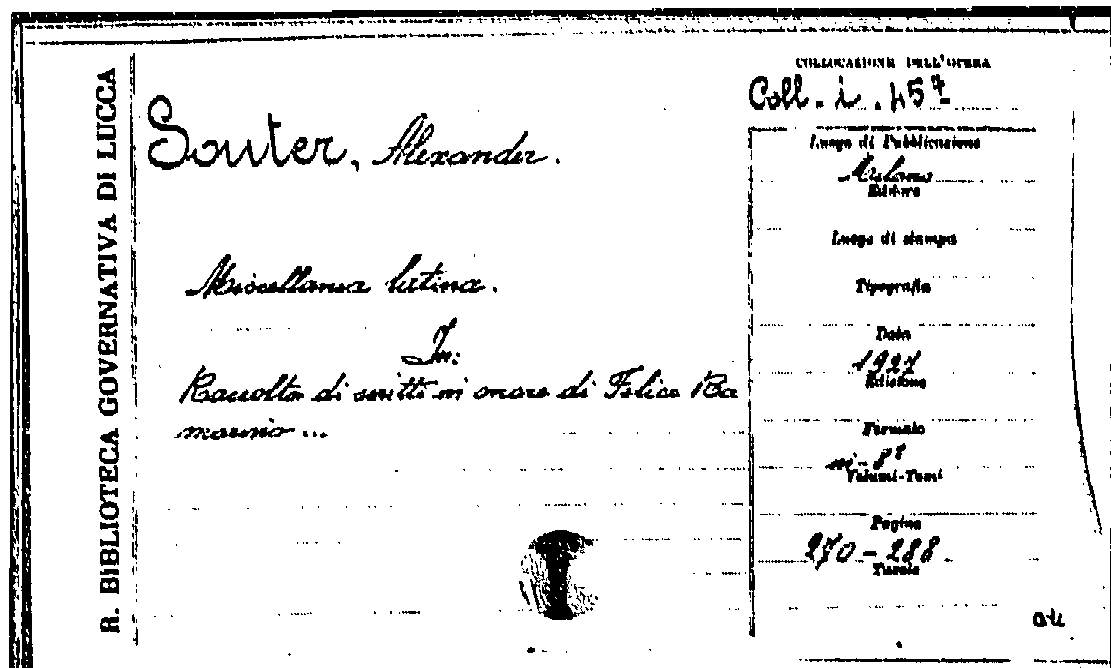 R. BIBLIOTECA GOVERNATIVA DI LUCCA
Souter, Alexander.
Miscellanea latina.
In:
Raccolta di scritti in onore di Felice Ra
morino ...
COLLOCAZIONE DELL'OPERA
Coll. i. 45⁷
Luogo di Pubblicazione
Milano
Editore
Luogo di stampa
Tipografia
Data
1927
Edizione
Formato
in-8°
Volumi-Tomi
Pagine
270-288
Tavole